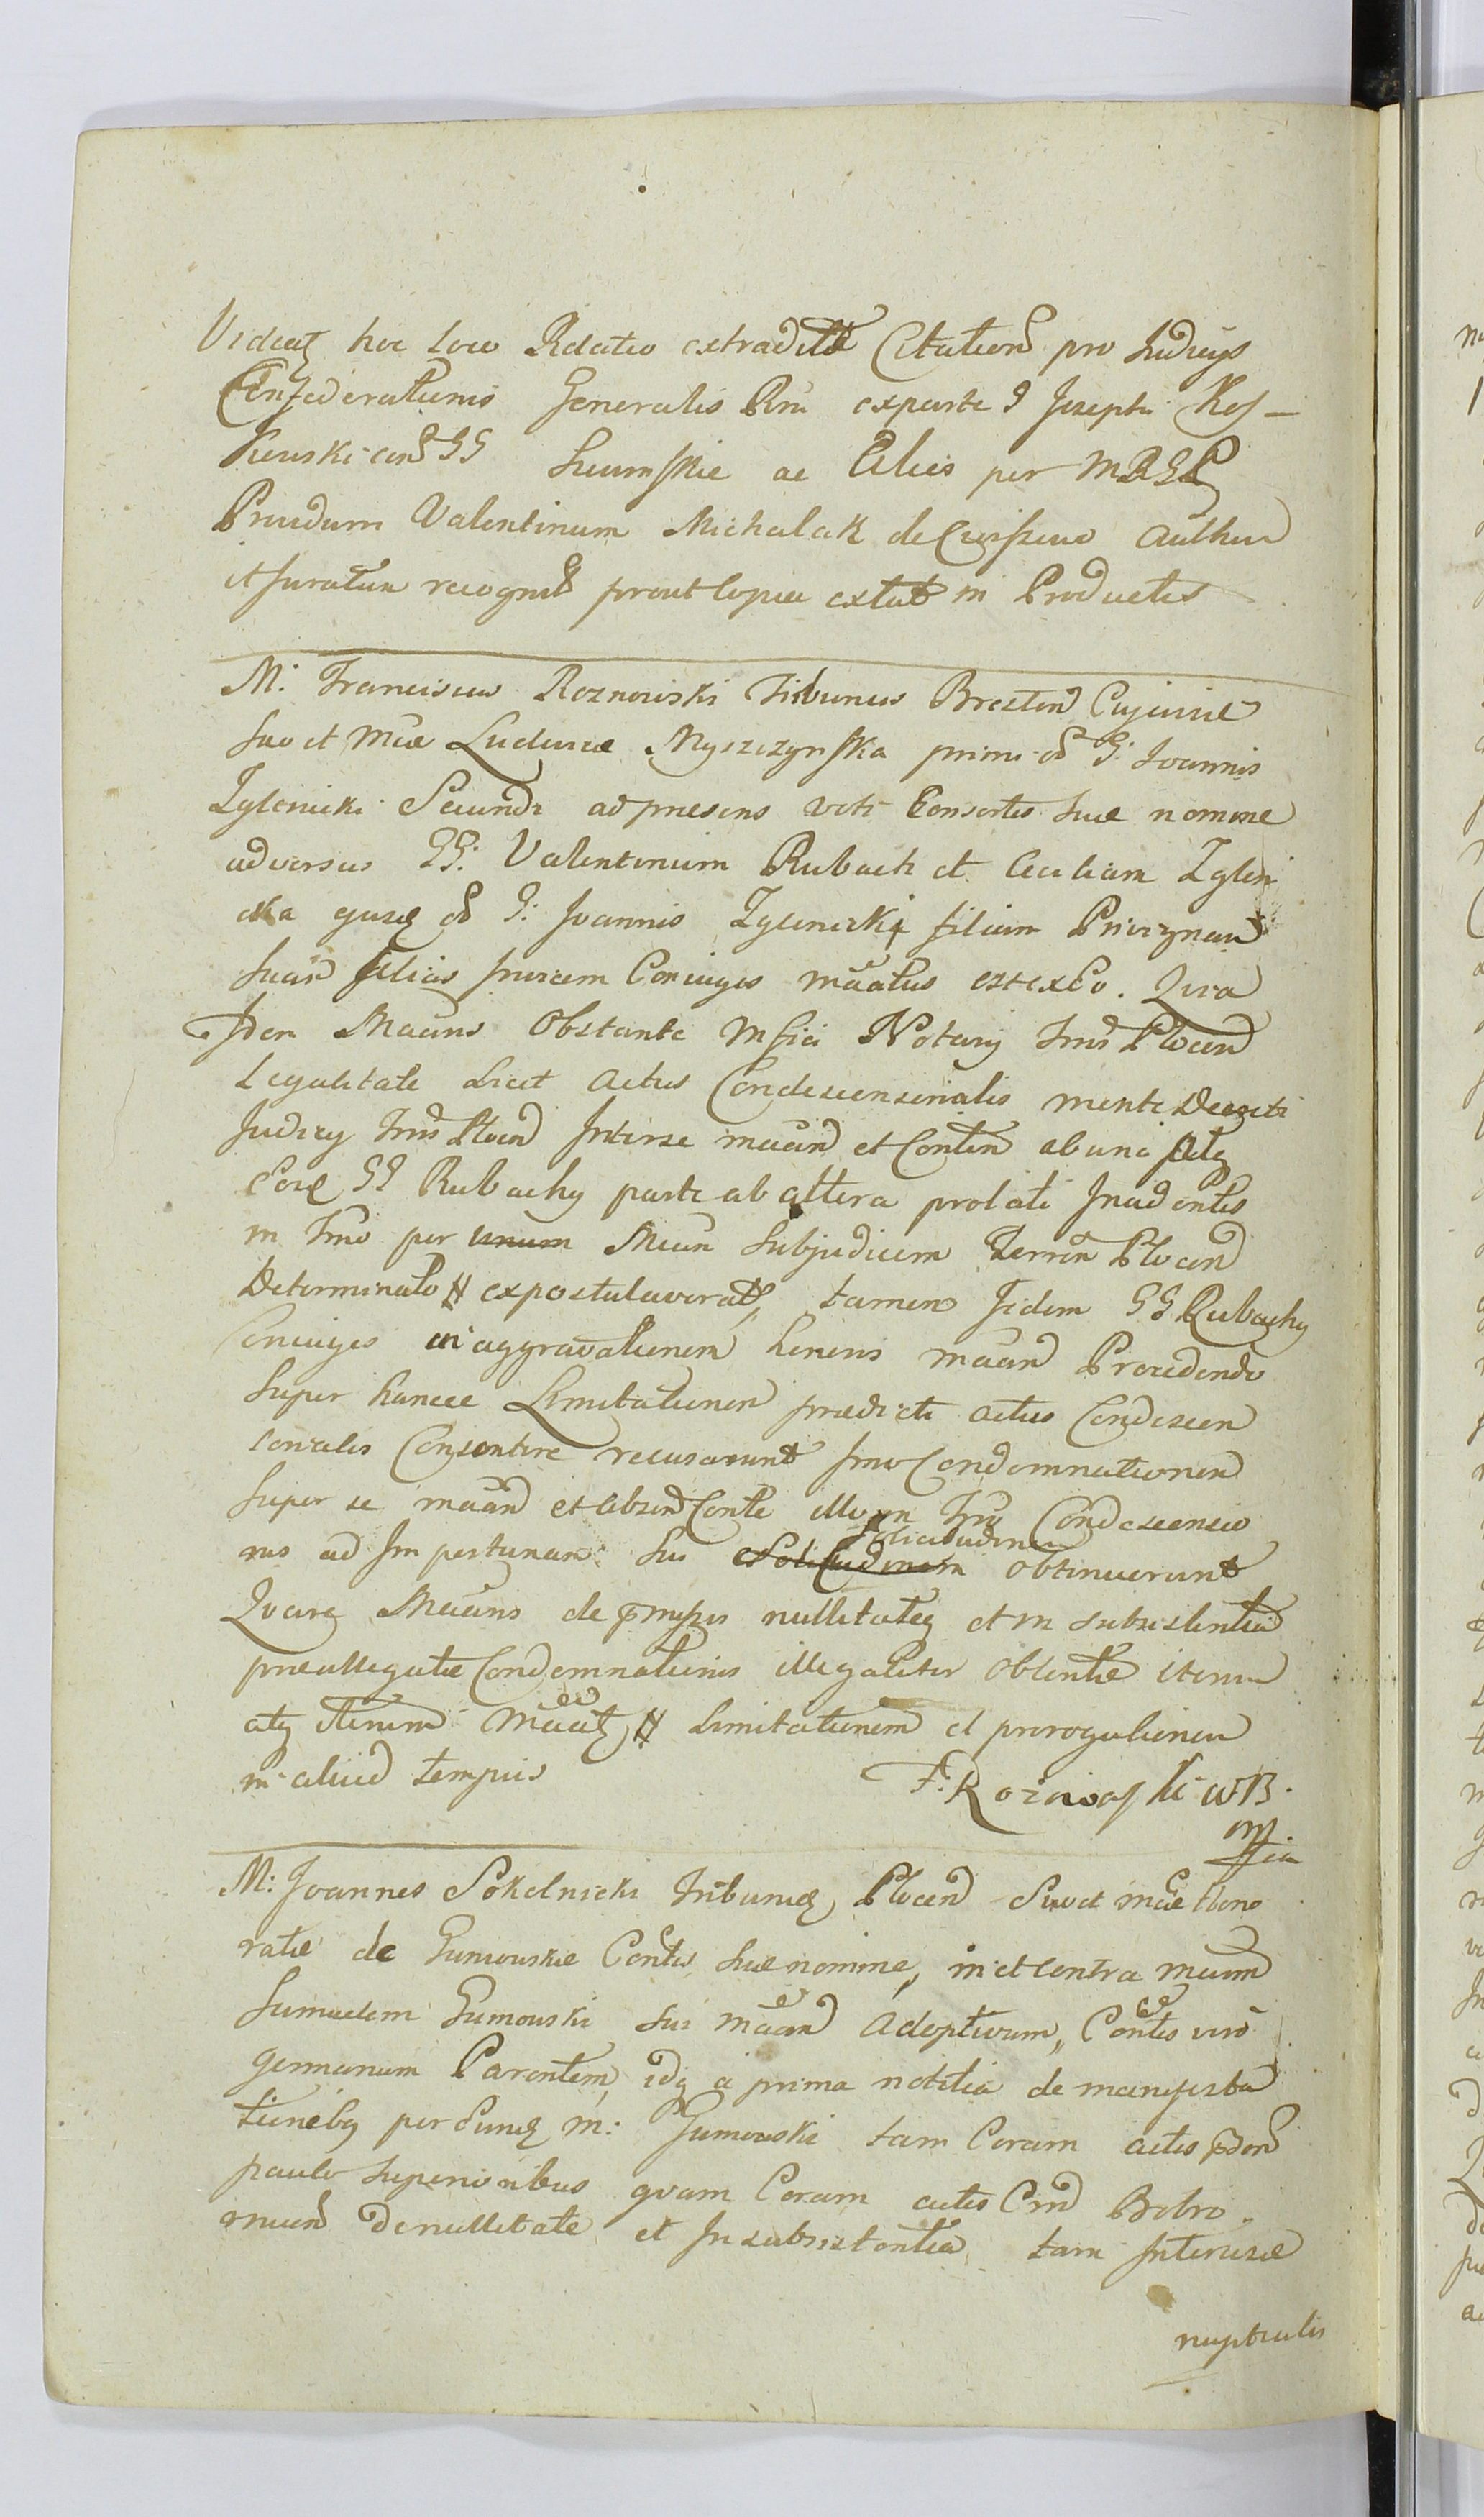 Videatq hoc loco Relatio extraditae Citation pro Judicys
Confederationis Generalis Rni exparte G Josephi Kos-
Kowski con GG Szumskie ac Alios per MRGP
Providum Valentinum Michalak de authen
et juratum recognit prout Copia extat in Productis
M: Franciscus Roznowski Tribunus Brestens Cujaviae
suo et Mcae Ludovicae Myszczynska primi od G: Joannis
Zglenicki Secundi ad praesens voti Consortis suae nomine
adversus GG: Valentinum Rubach et Ceciliam Zgleni
cka ejusq od G: Joannis Zglenicki filiam Privignam
suam alias invicem Coniuges maatus est ex Eo. Quia
Idem Maans Obstante Mfici Notary Trris Plocen
Legalitate Licet Actus Condescensionalis mente Decreti
Judicy Trris Plocen Inter se maan et Conten ab una atq
Eosq GG Rubachy parte ab altera prolati Incidentis
in Trno per unum Mcum Subjudicem Terren Plocen
Determinato N expostulaverat, tamen Iidem GG Rubachy
Coniuges in aggravationem honens maan Procedendo
super hancce Limitationem praedicti actus Condescen
sionalis Consentire recusarunt imo Condemnationem
super se maan et absen Conte illo in Trno Condescensio
nis ad Importunam sui Solicitudinem Solicitudinem obtinuerunt
Quare Maans de pmissis nullitateq et in subsistentia
praeallegatae Condemnationis illegaliter obtentae iterum
atq iterum Maatq N Limitationem et prorogationem
in aliud tempus F: Roznowski WB.
m.
M: Joannes Sokolnicki Tribunus Plocen Suo et Mcae Hono
ratae de Gumowskie Contis suae nomine, in et contra Mcum
Samuelem Gumowski sui maan Adoptivum, Contis vero
germanum Parentem, idq a prima notitia de manifesta
tionebq per Eunq M: Gumowski tam Coram actis pden
paulo superioribus quam Coram actis Crnd Bobro.
de nullitate et Insubsistentia tam Intercisae
nuptialis